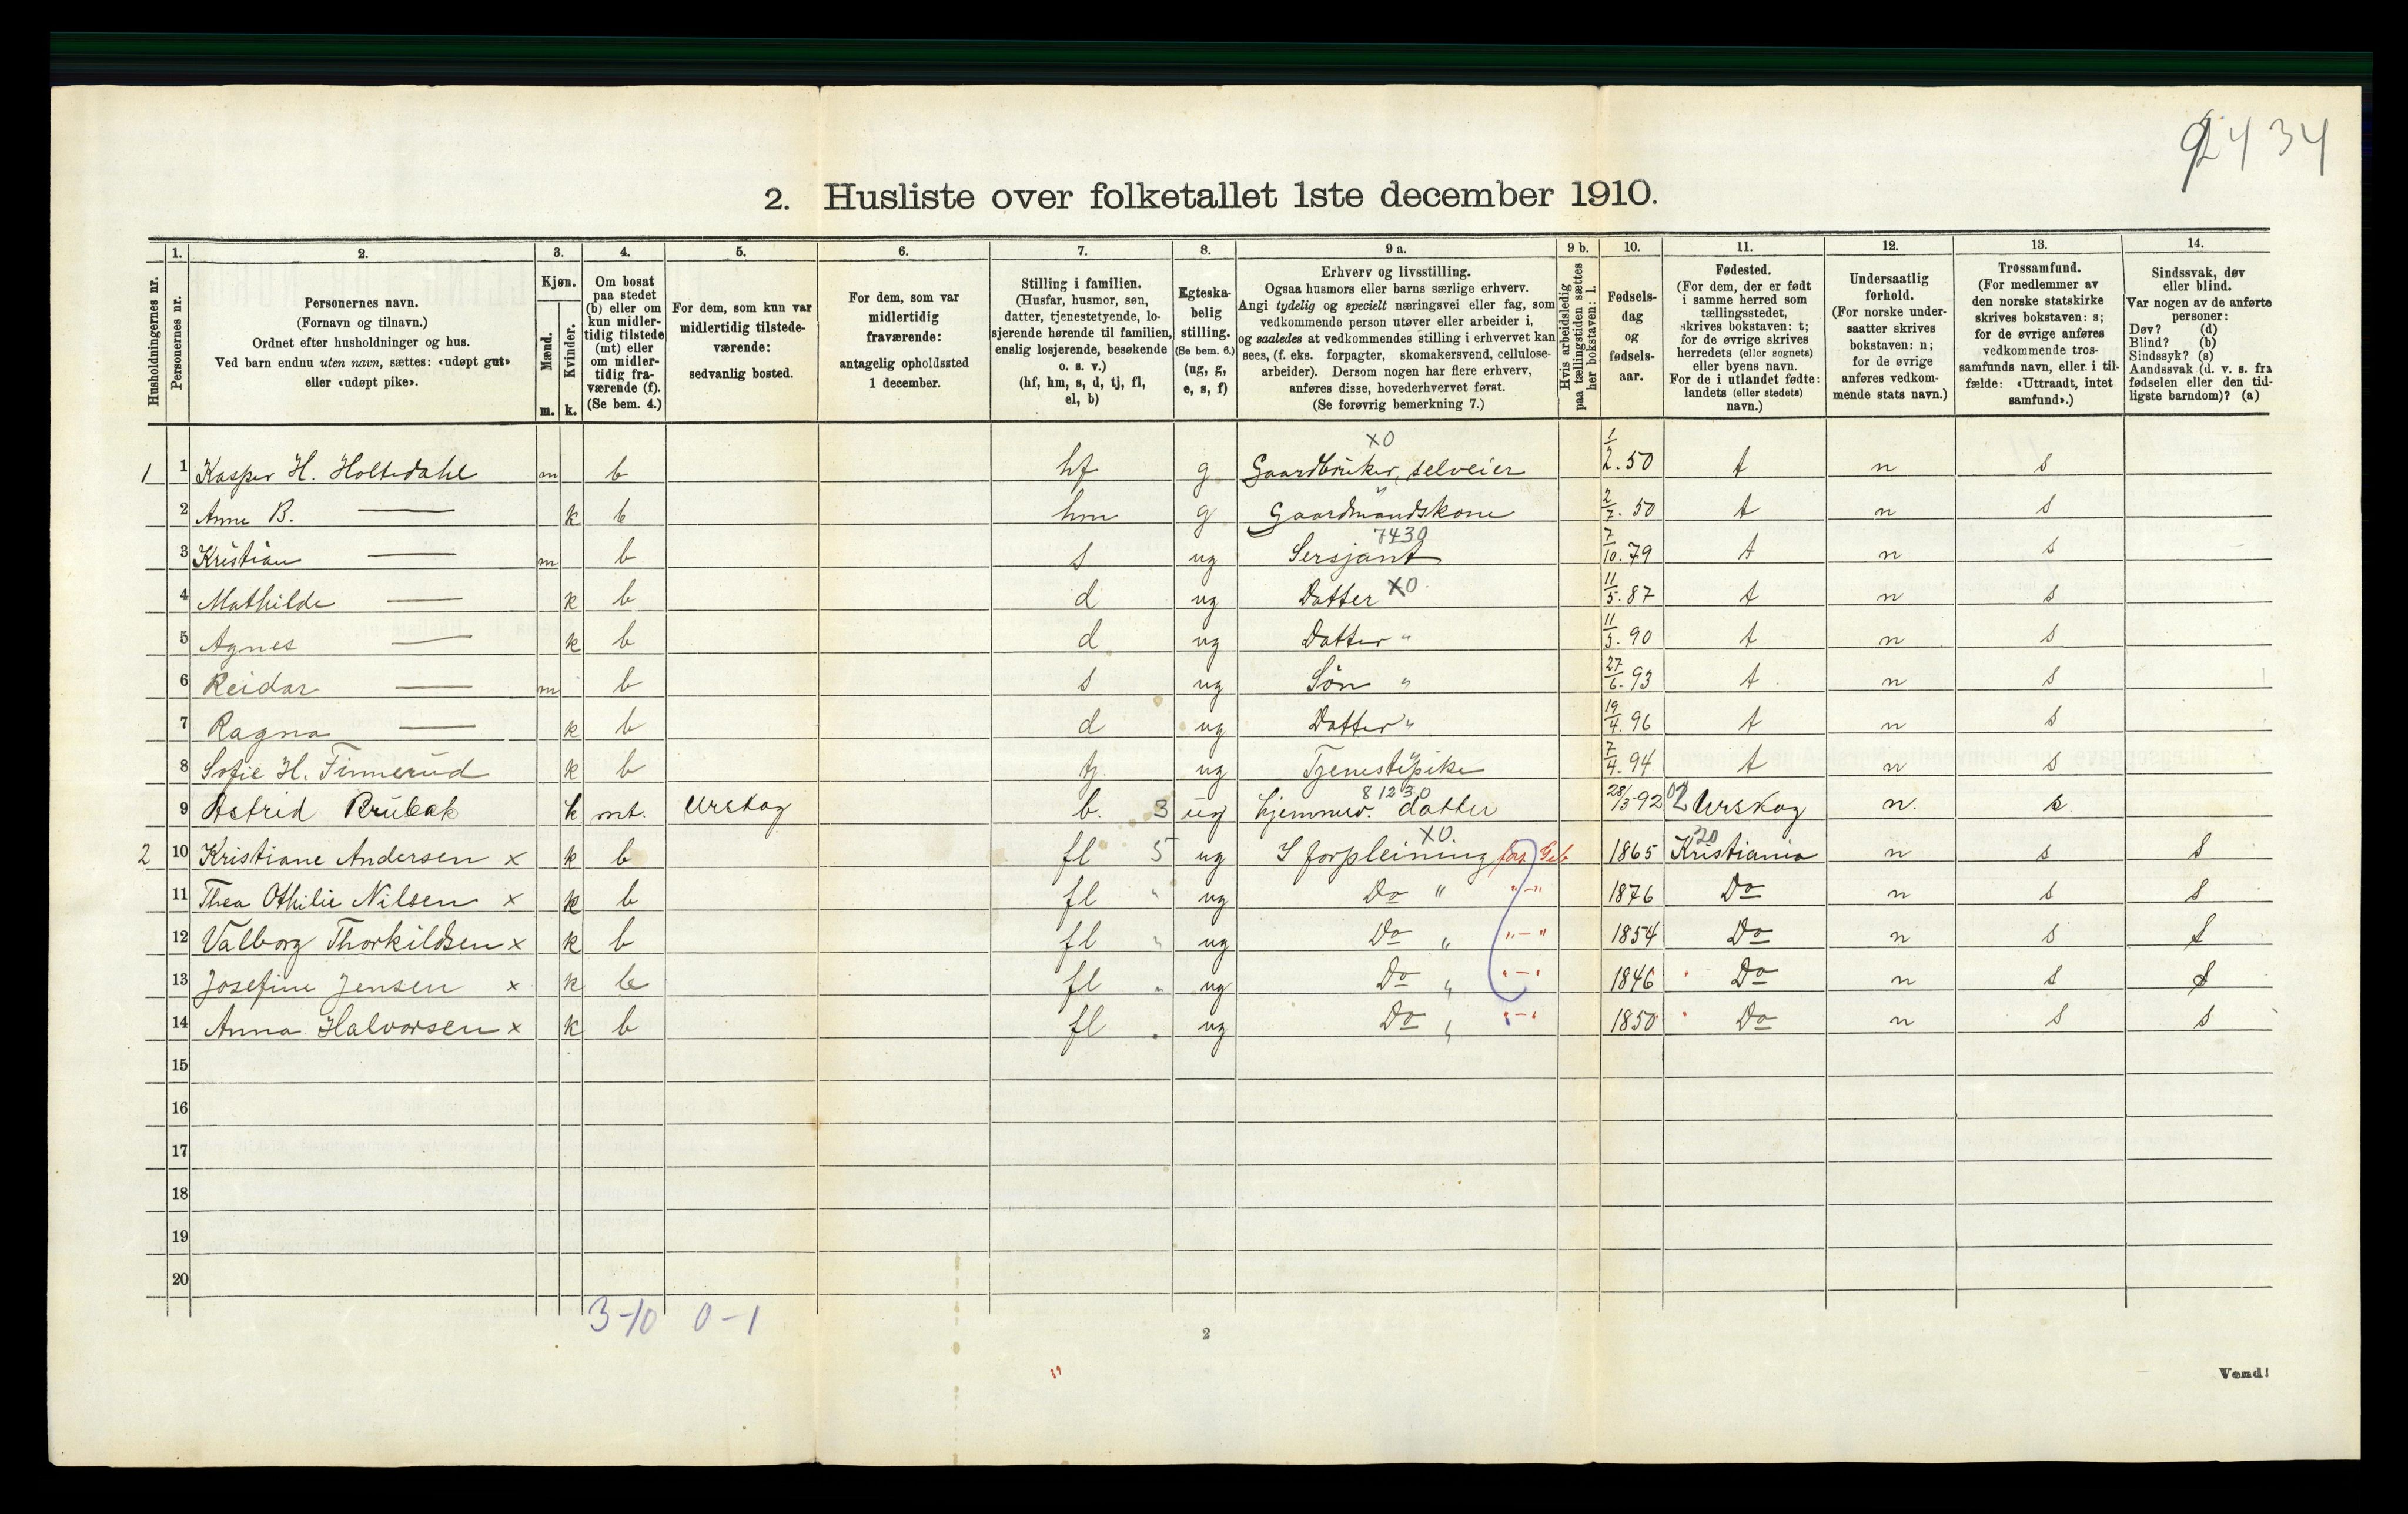 9 2 4 34
2. Husliste over folketallet 1ste december 1910.
Husholdningernes nr.
1. Personernes nr.
2. Personernes navn. (Fornavn og tilnavn.) Ordnet efter husholdninger og hus. Ved barn endnu uten navn, sættes: «udøpt gut» eller «udøpt pike».
3. Kjøn. Mænd. m. Kvinder. k.
4. Om bosat paa stedet (b) eller om kun midler- tidig tilstede (mt) eller om midler- tidig fra- værende (f). (Se bem. 4.)
5. For dem, som kun var midlertidig tilstede- værende: sedvanlig bosted.
6. For dem, som var midlertidig fraværende: antagelig opholdssted 1 december.
7. Stilling i familien. (Husfar, husmor, søn, datter, tjenestetyende, lo- sjerende hørende til familien, enslig losjerende, besøkende o. s. v.) (hf, hm, s, d, tj, fl, el, b)
8. Egteska- belig stilling. (Se bem. 6.) (ug, g, e, s, f)
9 a. Erhverv og livsstilling. Ogsaa husmors eller barns særlige erhverv. Angi tydelig og specielt næringsvei eller fag, som vedkommende person utøver eller arbeider i, og saaledes at vedkommendes stilling i erhvervet kan sees, (f. eks. forpagter, skomakersvend, cellulose- arbeider). Dersom nogen har flere erhverv, anføres disse, hovederhvervet først. (Se forøvrig bemerkning 7.)
9 b. Hvis arbeidsledig paa tællingstiden sættes her bokstaven: l.
10. Fødsels- dag og fødsels- aar.
11. Fødested. (For dem, der er født i samme herred som tællingsstedet, skrives bokstaven: t; for de øvrige skrives herredets (eller sognets) eller byens navn. For de i utlandet fødte: landets (eller stedets) navn.)
12. Undersaatlig forhold. (For norske under- saatter skrives bokstaven: n; for de øvrige anføres vedkom- mende stats navn.)
13. Trossamfund. (For medlemmer av den norske statskirke skrives bokstaven: s; for de øvrige anføres vedkommende tros- samfunds navn, eller i til- fælde: «Uttraadt, intet samfund».)
14. Sindssvak, døv eller blind. Var nogen av de anførte personer: Døv? (d) Blind? (b) Sindssyk? (s) Aandssvak (d. v. s. fra fødselen eller den tid- ligste barndom)? (a)
XO
1 1 Kasper H. Holtedahl m b hf g Gaardbruker, selveier 1/2. 50 t n s
2 Anne B. — k b hm g Gaardmandskone " 2/7. 50 t n s
7430
3 Kristian — m b s ug Sersjant 7/10. 79 t n s
4 Mathilde — k b d ug Datter XO 11/5. 87 t n s
5 Agnes — k b d ug Datter " 11/3. 90 t n s
6 Reidar — m b s ug Søn " 27/6. 93 t n s
7 Ragna — k b d ug Datter " 19/4. 96 t n s
8 Sofie H. Finnerud k b tj. ug Tjenestepike 7/4. 94 t n s
81230
9 Astrid Brubak k mt. Urskog b. 3 ug hjemmev. datter 28/3-92 02 Urskog n. s.
XO 20
2 10 Kristiane Andersen x k b fl 5 ug I forpleining 1865 Kristiania n s s
11 Thea Othilie Nilsen x k b fl " ug Do " "-" 1876 Do n s s
12 Valborg Thorkildsen x k b fl " ug Do " "-" 1854 Do n s s
13 Josefine Jensen x k b fl " ug Do " "-" 1846 Do n s s
14 Anna Halvorsen x k b fl " ug Do " "-" 1850 Do n s s
15
16
17
18
19
20
3-10 0-1
2
Vend!